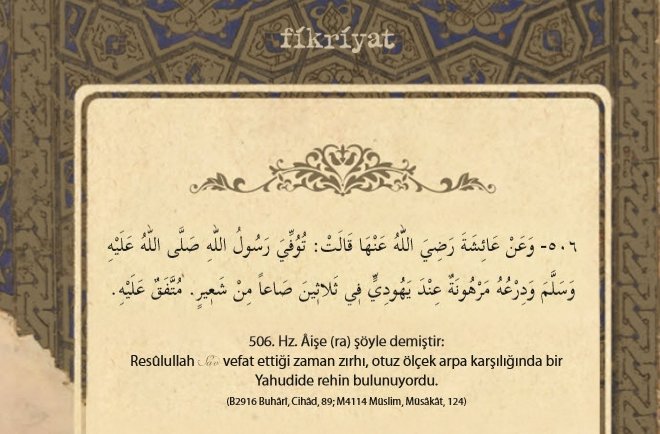 fikriyat
٥٠٦- وَعَنْ عَائِشَةَ رَضِيَ اللهُ عَنْهَا قَالَتْ: تُوُفِّيَ رَسُولُ اللهِ صَلَّى اللهُ عَلَيْهِ
وَسَلَّمَ وَدِرْعُهُ مَرْهُونَةٌ عِنْدَ يَهُودِيٍّ فِي ثَلَاثِينَ صَاعاً مِنْ شَعِيرٍ. مُتَّفَقٌ عَلَيْهِ.
506. Hz. Âişe (ra) şöyle demiştir:
Resûlullah Sav vefat ettiği zaman zırhı, otuz ölçek arpa karşılığında bir
Yahudide rehin bulunuyordu.
(B2916 Buhârî, Cihâd, 89; M4114 Müslim, Müsâkât, 124)